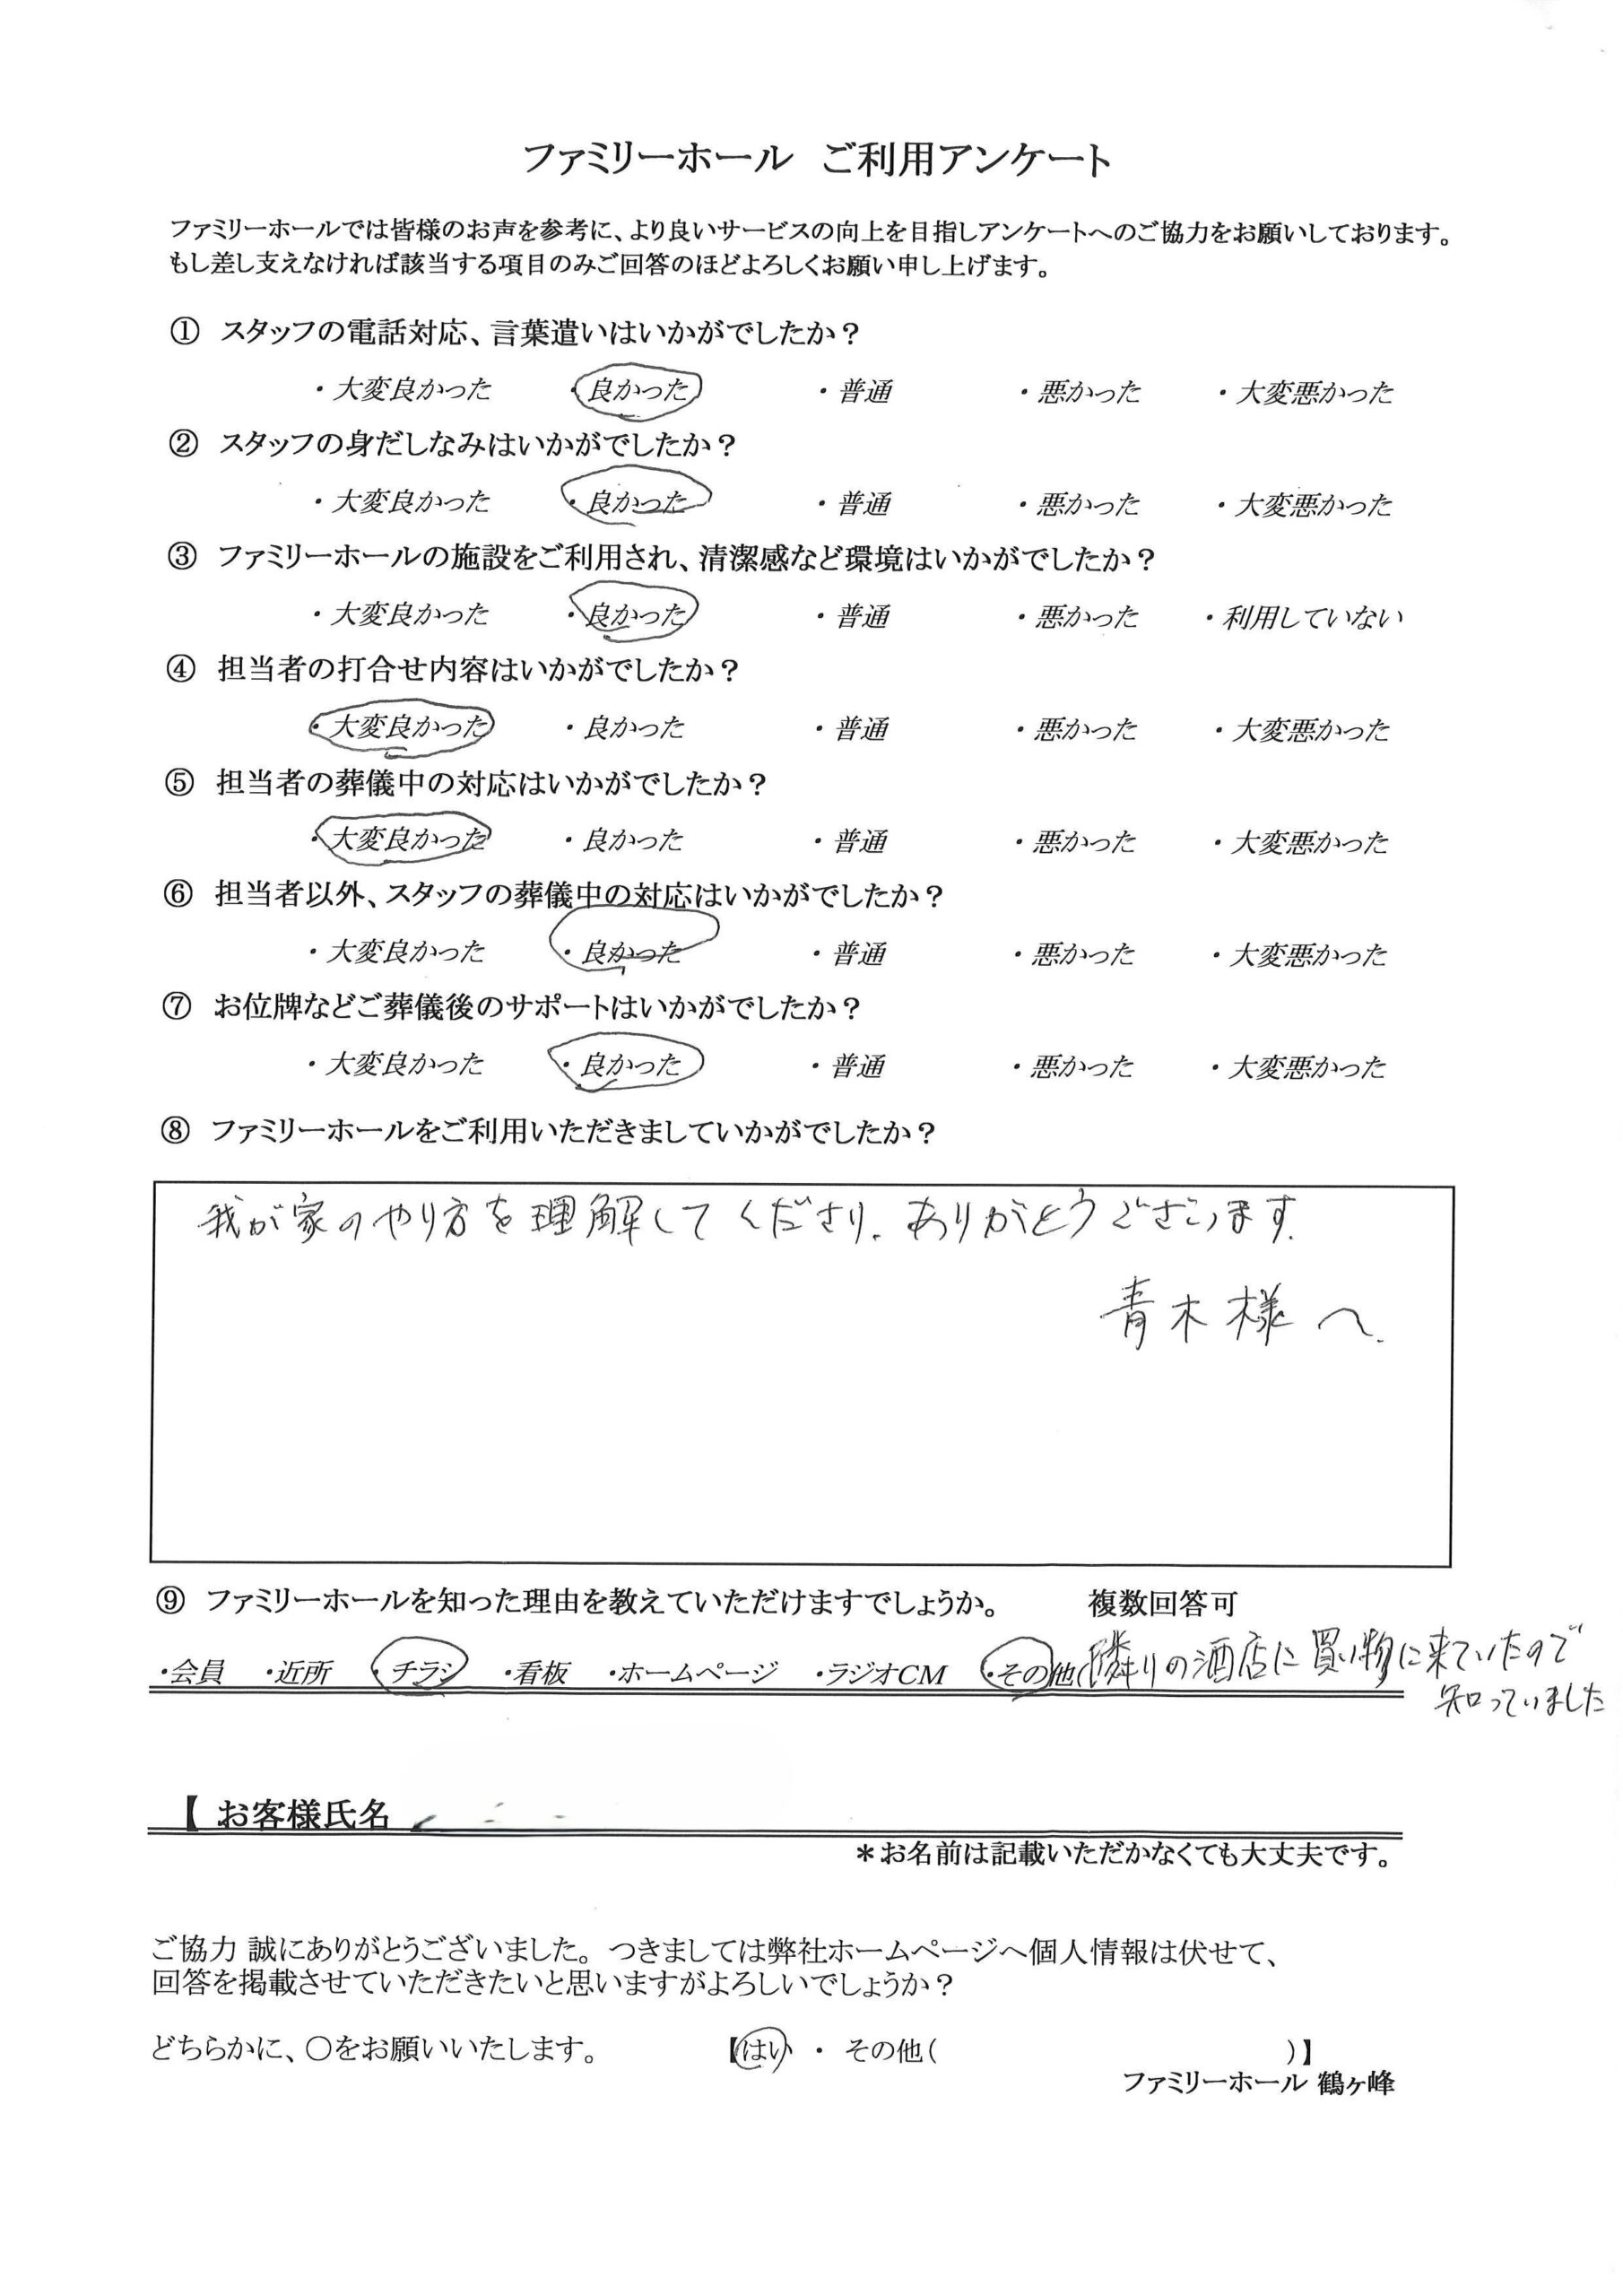 ファミリーホール ご利用アンケート
ファミリーホールでは皆様のお声を参考に、より良いサービスの向上を目指しアンケートへのご協力をお願いしております。
もし差し支えなければ該当する項目のみご回答のほどよろしくお願い申し上げます。
① スタッフの電話対応、言葉遣いはいかがでしたか？
・大変良かった ・良かった ・普通 ・悪かった ・大変悪かった
② スタッフの身だしなみはいかがでしたか？
・大変良かった ・良かった ・普通 ・悪かった ・大変悪かった
③ ファミリーホールの施設をご利用され、清潔感など環境はいかがでしたか？
・大変良かった ・良かった ・普通 ・悪かった ・利用していない
④ 担当者の打合せ内容はいかがでしたか？
・大変良かった ・良かった ・普通 ・悪かった ・大変悪かった
⑤ 担当者の葬儀中の対応はいかがでしたか？
・大変良かった ・良かった ・普通 ・悪かった ・大変悪かった
⑥ 担当者以外、スタッフの葬儀中の対応はいかがでしたか？
・大変良かった ・良かった ・普通 ・悪かった ・大変悪かった
⑦ お位牌などご葬儀後のサポートはいかがでしたか？
・大変良かった ・良かった ・普通 ・悪かった ・大変悪かった
⑧ ファミリーホールをご利用いただきましていかがでしたか？
我が家のやり方を理解してくださり、ありがとうございます。
青木様へ
⑨ ファミリーホールを知った理由を教えていただけますでしょうか。 複数回答可
・会員 ・近所 ・チラシ ・看板 ・ホームページ ・ラジオCM ・その他( 隣りの酒店に買い物に来ていたので
知っていました
【 お客様氏名
＊お名前は記載いただかなくても大丈夫です。
ご協力 誠にありがとうございました。つきましては弊社ホームページへ個人情報は伏せて、
回答を掲載させていただきたいと思いますがよろしいでしょうか？
どちらかに、〇をお願いいたします。 【はい ・ その他( )】
ファミリーホール 鶴ヶ峰